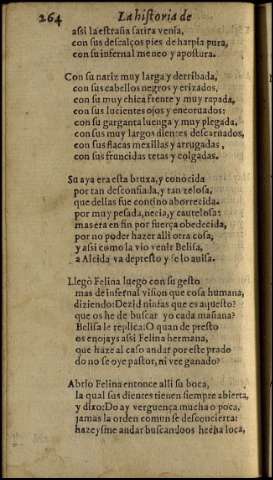 264 La historia de
assi la estraña satira venía,
con sus descalços pies de harpia pura,
con su infernal meneo y apostura.
Con su nariz muy larga y derribada,
con sus cabellos negros y erizados,
con su muy chica frente y muy rapada,
con sus luzientos ojos y encoruados:
con su garganta luenga y muy plegada,
con sus muy largos dientes descarnados,
con sus flacas mexillas y arrugadas,
con sus fruncidas tetas y colgadas.
Su aya era esta bruxa, y conocida
por tan desconfiada, y tan zelosa,
que dellas fue contino aborrecida.
por muy pesada, necia, y cautelosa:
mas era en fin por fuerça obedecida,
por no poder hazer alli otra cosa,
y assi como la vio venir Belisa,
a Alcida va de presto y se lo auisa.
Llegò Felina luego con su gesto
mas de infernal vision que cosa humana,
diziendo: Dezid ninfas que es aquesto?
que os he de buscar yo cada mañana?
Belisa le replica: O quan de presto
os enojays assi Felina hermana,
que haze al caso andar por este prado
do no se oye pastor, ni vee ganado?
Abrio Felina entonce alli su boca,
la qual sus dientes tienen siempre abierta,
y dixo: Do ay verguença mucha o poca,
jamas la orden comun se desconcierta:
hazeysme andar buscandoos hecha loca,